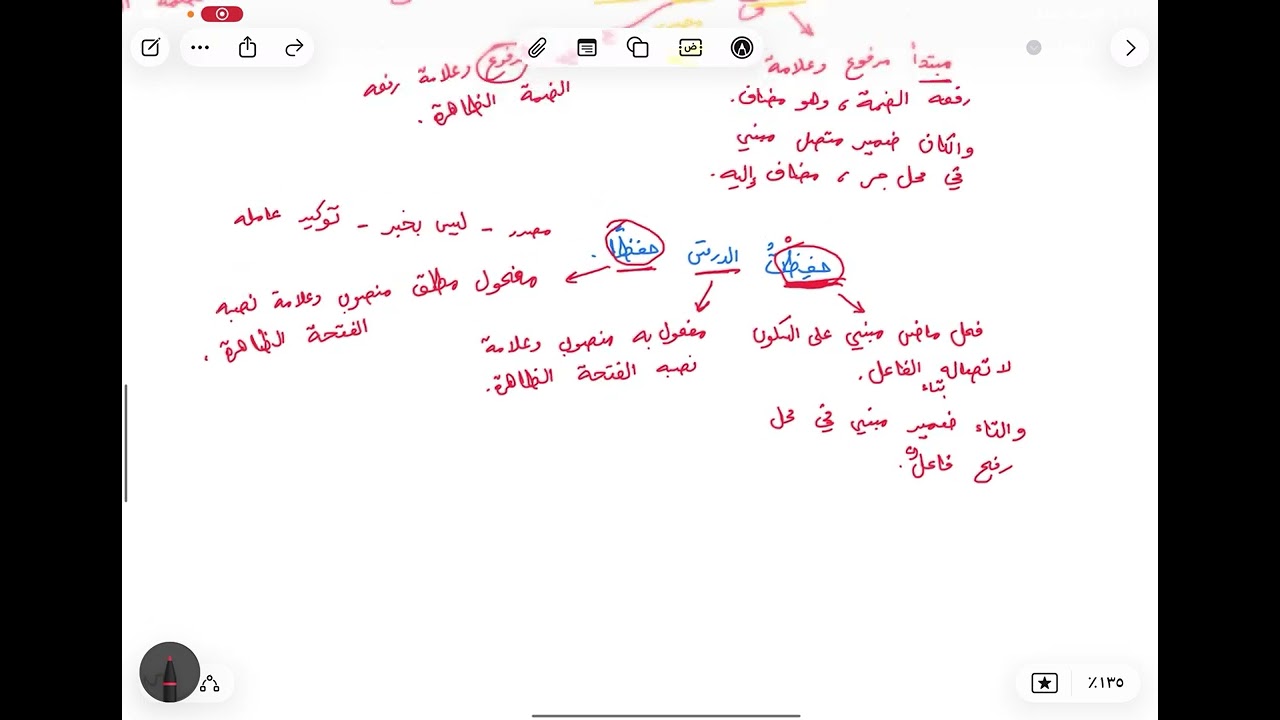 مبتدأ مرفوع وعلامة
رفعه الضمة، وهو مضاف.
والكاف ضمير متصل مبني
في محل جر، مضاف إليه.
مرفوع وعلامة رفعه
الضمة الظاهرة.
حفِظْتُ الدرسَ حفظًا.
مصدر - ليس بخبر - توكيد عامله
فعل ماضٍ مبني على السكون
لاتصاله بتاء الفاعل.
والتاء ضمير مبني في محل
رفع فاعل.
مفعول به منصوب وعلامة
نصبه الفتحة الظاهرة.
مفعول مطلق منصوب وعلامة نصبه
الفتحة الظاهرة.
٪١٣٥